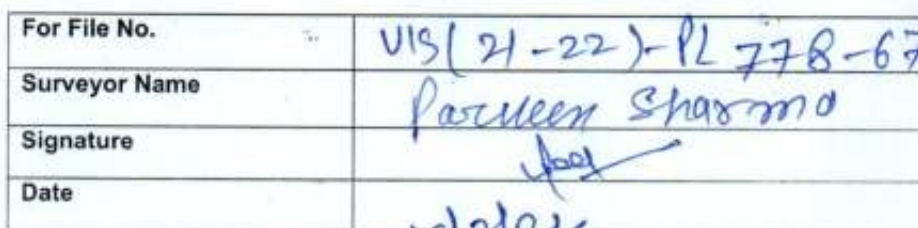 For File No. VIS(21-22)-PL 778-67
Surveyor Name Parveen Sharma
Signature
Date